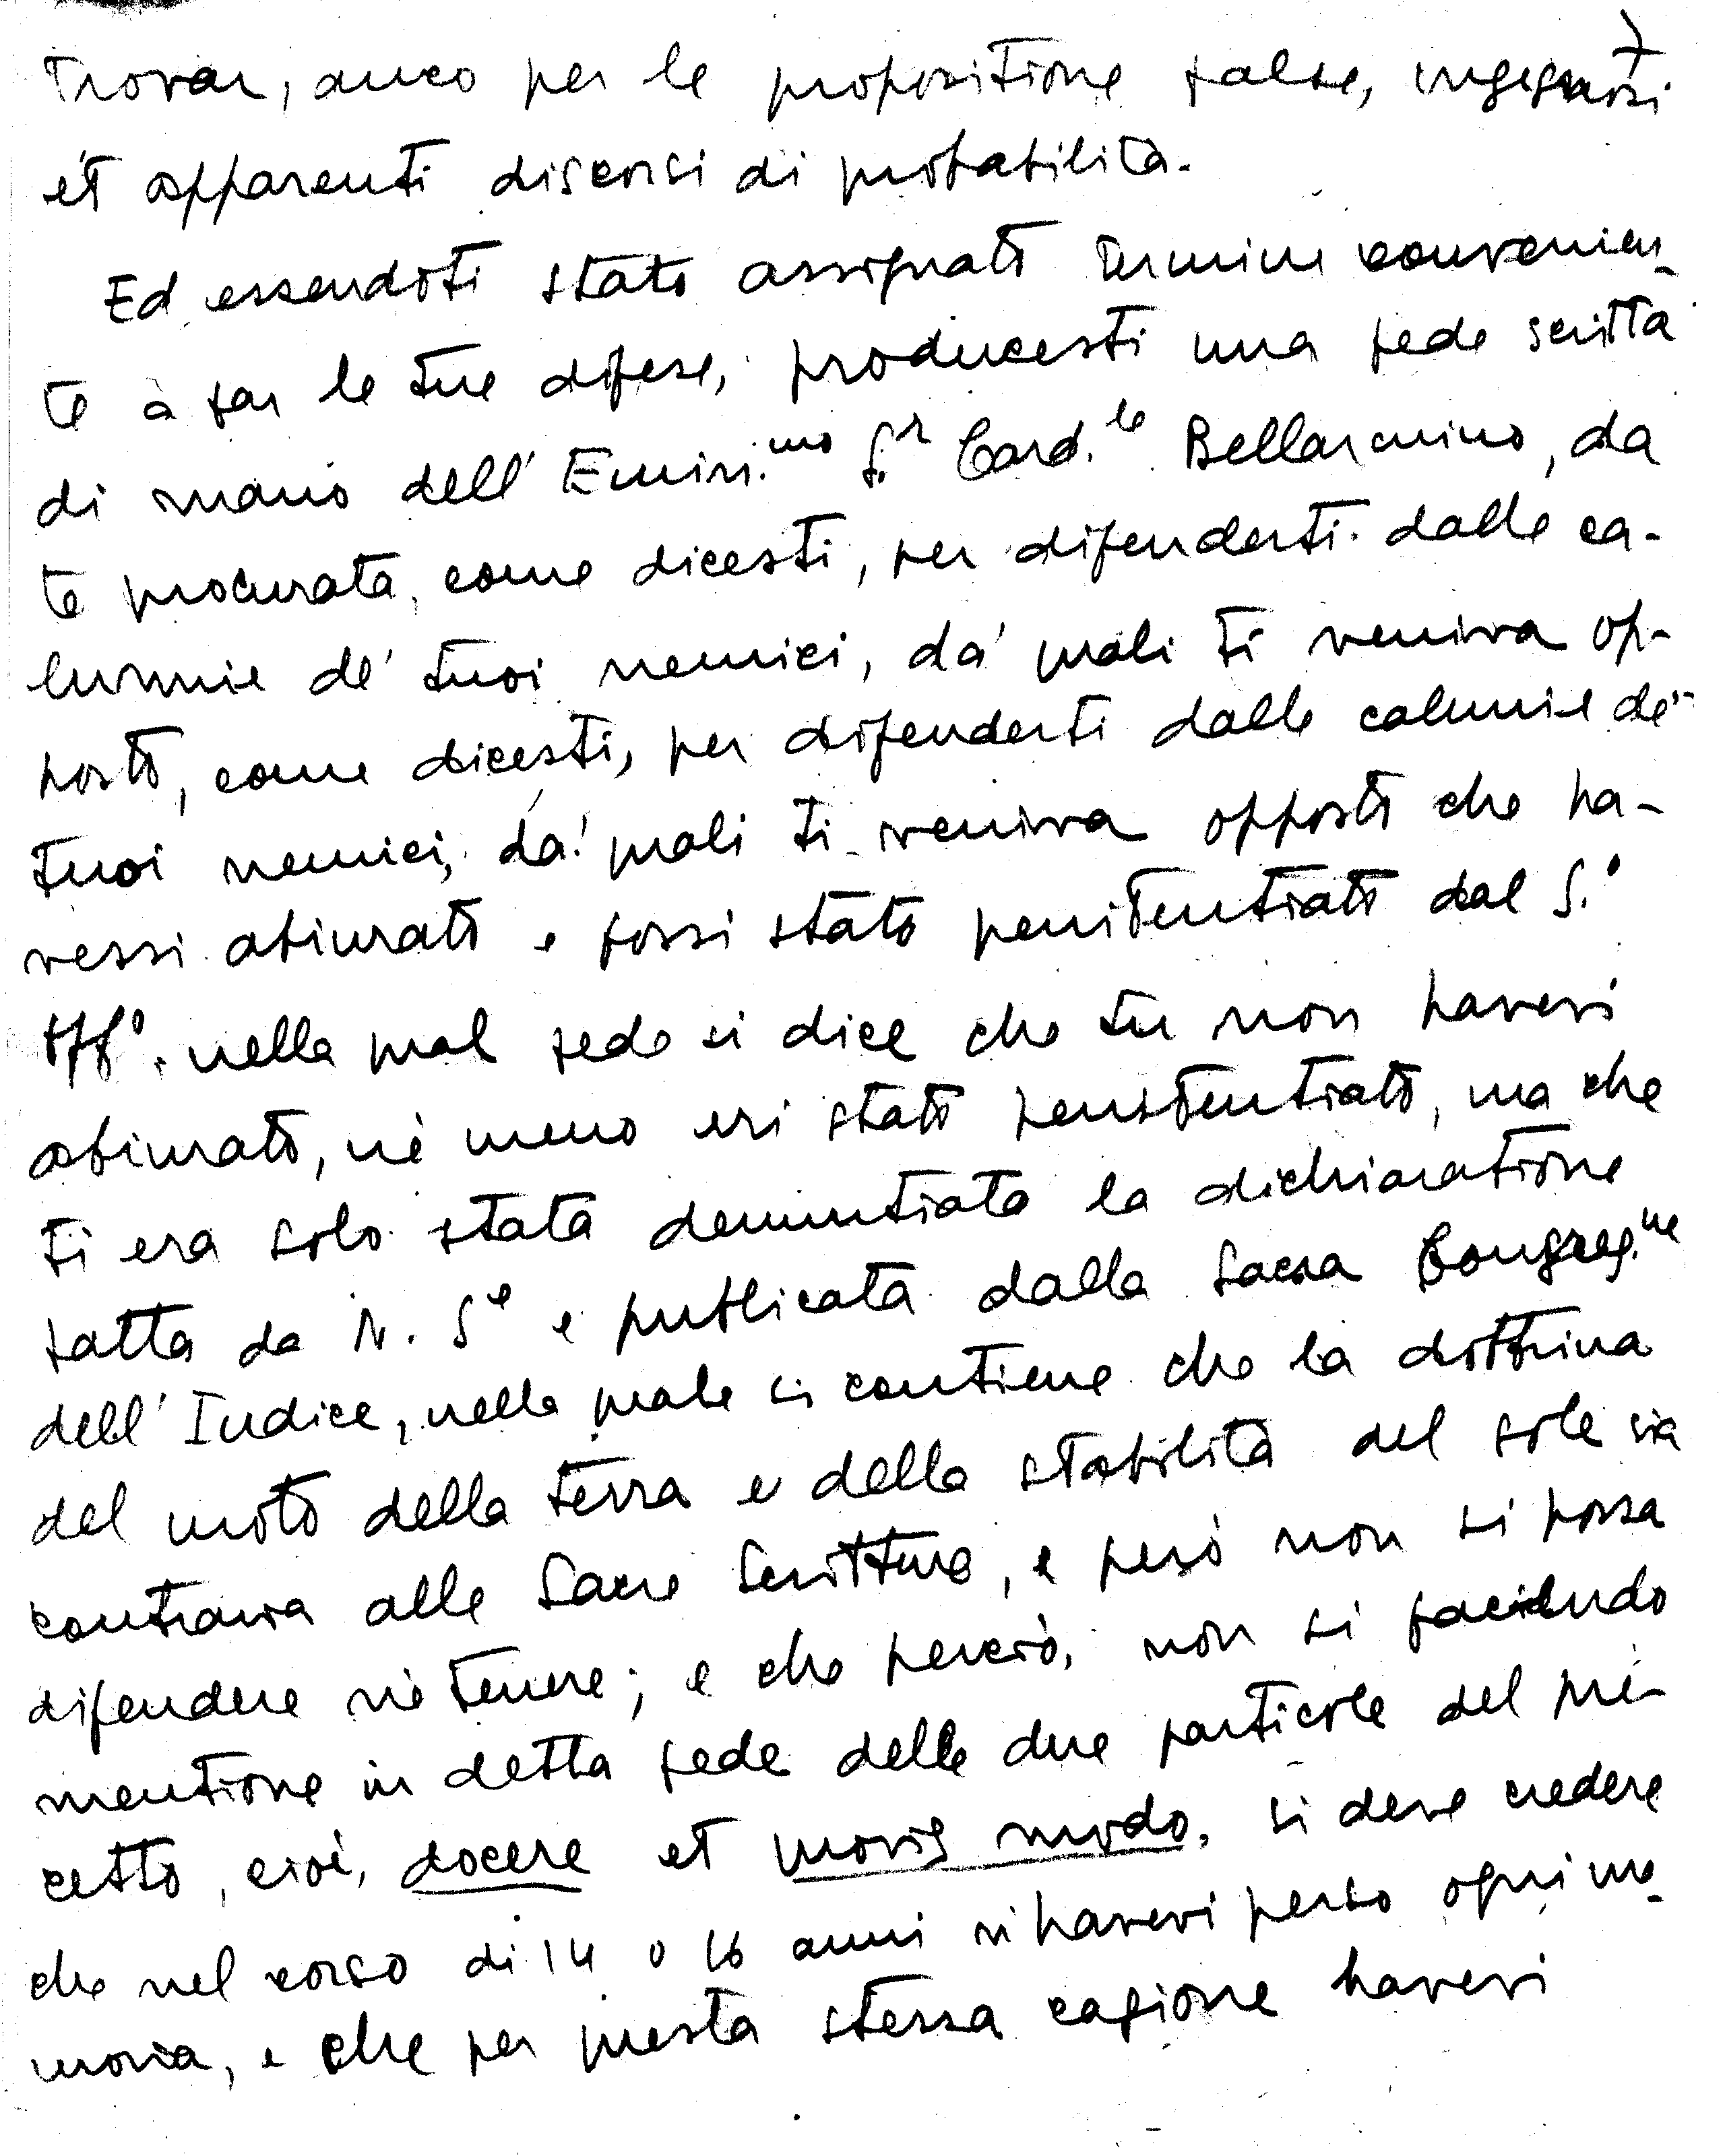 trovar, anco per le propositione false, ingegnosi
et apparenti discorsi di probabilità.
Ed essendoti stato assignato termine convenien-
te à far le tue difese, producesti una fede scritta
di mano dell' Emin.mo S.r Card.le Bellarmino, da
te procurata, come dicesti, per difenderti dalle ca-
lunnie de' tuoi nemici, da' quali ti veniva op-
posto, come dicesti, per difenderti dalle calunnie de'
tuoi nemici, da' quali ti veniva opposto che ha-
vessi abiurato e fossi stato penitentiato dal S.o
Off.o nella qual fede si dice che tu non havevi
abiurato, nè meno eri stato penitentiato, ma che
ti era solo stata denuntiata la dichiaratione
fatta da N. S.e e publicata dalla Sacra Congreg.ne
dell' Indice, nella quale si contiene che la dottrina
del moto della terra e della stabilità del sole sia
contraria alle Sacre Scritture, e però non si possa
difendere nè tenere; e che perciò, non si facendo
mentione in detta fede delle due particole del pre-
cetto, cioè, docere et quovis modo, si deve credere
che nel corso di 14 o 16 anni n' havevi perso ogni me-
moria, e che per questa stessa cagione havevi